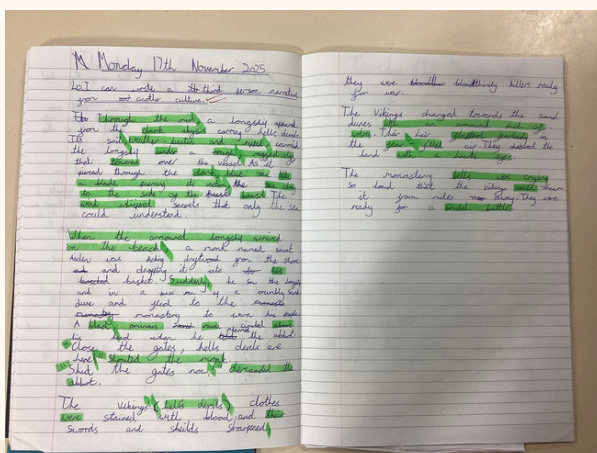 Monday 17th November 2025
L.O I can write a third person narrative
from another culture.
Through the mist, a longship appeared
from the black abyss carrying hells devils.
Its sail, weather beaten and ripped, carried
the longship under a
that towered over the vessel. As it
pierced through the dark, blue sea like
a blade, the sea clung
to the side of the beast. The
wind whispered secrets that only the sea
could understand.
When the armoured longship arrived
on the beach, a monk named saint
Aiden was driftwood from the shore
and dropping it into his
basket. Suddenly, he saw the longship
and in a of a crumbly sand
dune and fled to the
monastery to warn his people.
A black, ominous circled above
his head when he the abbot.
"Close the gates, hells devils are
here" shouted the monk.
"Shut the gates now," demanded the
abbot.
The Vikings' (hell's devils) clothes
were stained with blood and their
swords and sheilds sharpened,
they were bloodthirsty killers ready
for war.
The Vikings charged towards the sand
dunes like an pack of
Their hair
the filled air. They dashed the
land
The monastery bells were
so loud that the vikings could them
it from miles away. They were
ready for a brutal battle.